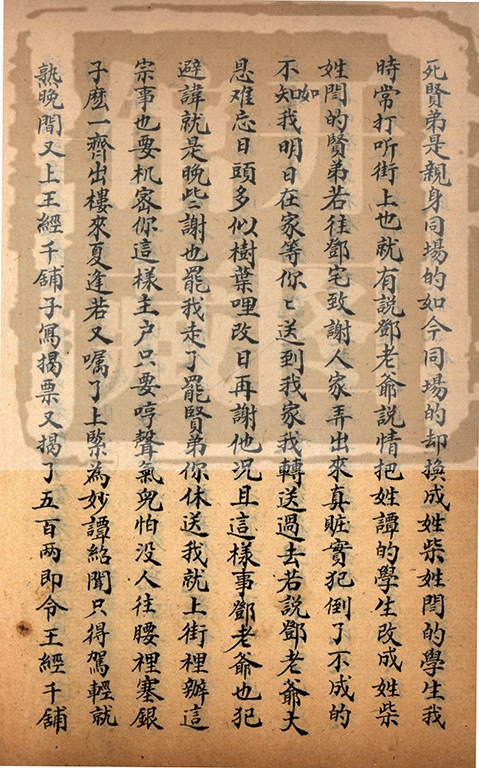 死賢弟是親身同場的如今同場的却換成姓柴姓閆的學生我
時常打听街上也就有説鄧老爺説情把姓譚的學生改成姓柴
姓閆的賢弟若往鄧宅致謝人家弄出來真賍實犯倒了不成的
不如知我明日在家等你〻送到我家我轉送過去若説鄧老爺大
恩难忘日頭多似樹葉哩改日再謝他况且這樣事鄧老爺也犯
避諱就是晚些〻謝也罷我走了罷賢弟你休送我就上街裡辦這
宗事也要机密你這樣主户只要哼聲氣兒怕没人往腰裡塞銀
子麽一齊出樓來夏逢若又嘱了上緊為妙譚紹聞只得駕輕就
熟晚間又上王經千舖子寫揭票又揭了五百两即令王經千舖